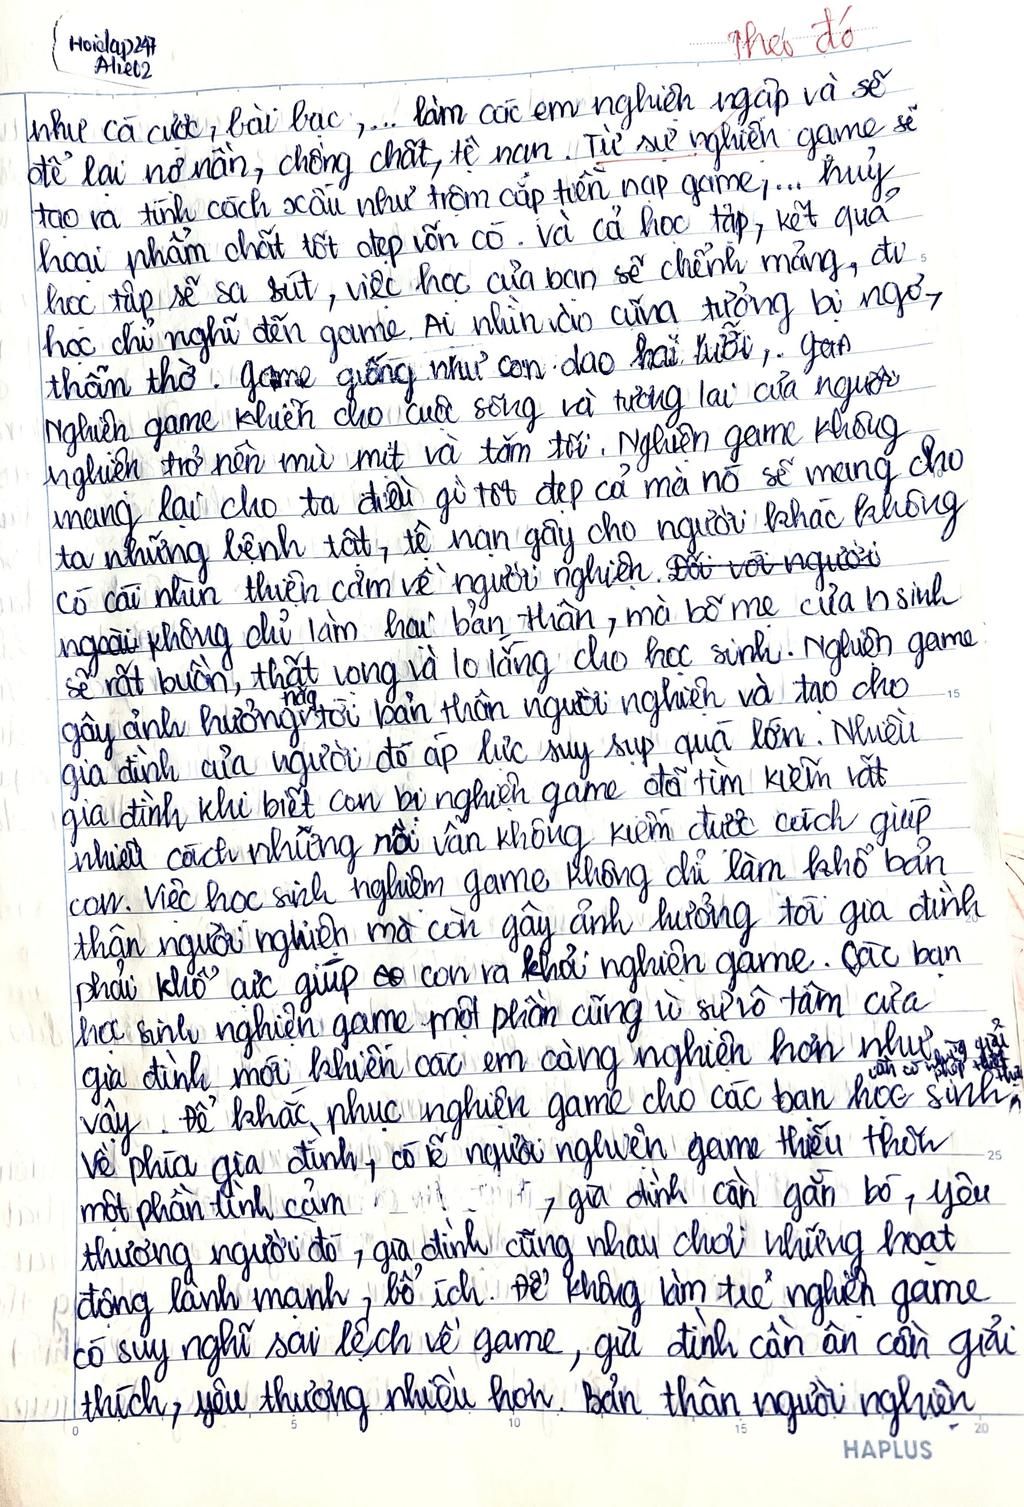 Hoidap247
Alie02
Theo đó
như cá cược, bài bạc,... làm các em nghiện ngập và sẽ
để lại nợ nần, chồng chất, tệ nạn. Từ sự nghiện game sẽ
tạo ra tính cách xấu như trộm cắp tiền nạp game,... huỷ
hoại phẩm chất tốt đẹp vốn có. Và cả học tập, kết quả
học tập sẽ sa sút, việc học của bạn sẽ chểnh mảng, đi
học chỉ nghĩ đến game. Ai nhìn vào cũng tưởng bị ngơ,
thẩn thờ. Game giống như con dao hai lưỡi,.
Nghiện game khiến cho cuộc sống và tương lai của người
nghiện trở nên mù mịt và tăm tối. Nghiện game không
mang lại cho ta điều gì tốt đẹp cả mà nó sẽ mang cho
ta những bệnh tật, tệ nạn gây cho người khác không
có cái nhìn thiện cảm về người nghiện. Đối với người
ngoài không chỉ làm hại bản thân, mà bố mẹ của h sinh
sẽ rất buồn, thất vọng và lo lắng cho học sinh. Nghiện game
gây ảnh hưởng nặng tới bản thân người nghiện và tạo cho
gia đình của người đó áp lực suy sụp quá lớn. Nhiều
gia đình khi biết con bị nghiện game đã tìm kiếm rất
nhiều cách nhưng rồi vẫn không kiếm được cách giúp
con. Việc học sinh nghiện game không chỉ làm khổ bản
thân người nghiện mà còn gây ảnh hưởng tới gia đình
phải khổ cực giúp con ra khỏi nghiện game. Các bạn
học sinh nghiện game một phần cũng vì sự vô tâm của
gia đình mới khiến các em càng nghiện hơn như
vậy. Để khắc phục nghiện game cho các bạn học sinh
cần có những giải pháp
về phía gia đình, có lẽ người nghiện game thiếu thốn
một phần tình cảm , gia đình cần gắn bó, yêu
thương người đó, gia đình cùng nhau chơi những hoạt
động lành mạnh, bổ ích. Để không làm trẻ nghiện game
có suy nghĩ sai lệch về game, gia đình cần ân cần giải
thích, yêu thương nhiều hơn. Bản thân người nghiện
5
15
25
0 5 10 15 20
HAPLUS